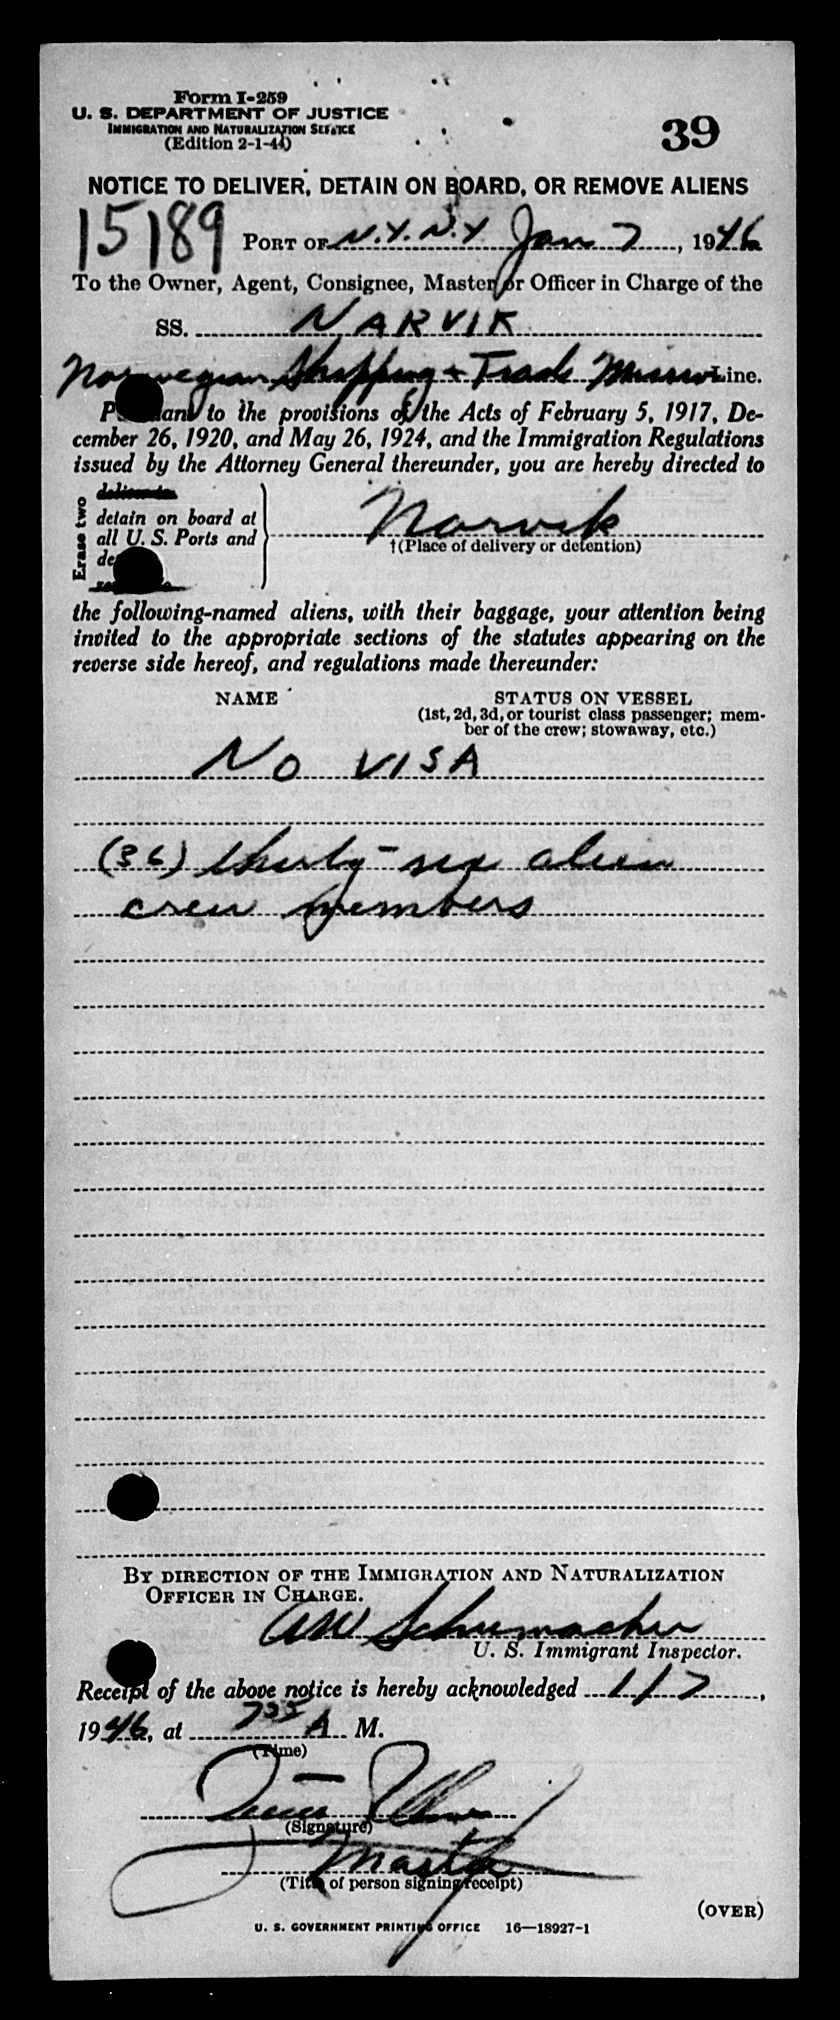 Form I-259
U. S. DEPARTMENT OF JUSTICE
IMMIGRATION AND NATURALIZATION SERVICE
(Edition 2-1-44)
39
NOTICE TO DELIVER, DETAIN ON BOARD, OR REMOVE ALIENS
15189 PORT OF N.Y. N.Y Jan 7, 1946
To the Owner, Agent, Consignee, Master, or Officer in Charge of the
SS. NARVIK
Norwegian Shipping + Trade Mission Line.
Pursuant to the provisions of the Acts of February 5, 1917, De-
cember 26, 1920, and May 26, 1924, and the Immigration Regulations
issued by the Attorney General thereunder, you are hereby directed to
Erase two
deliver to
detain on board at
all U. S. Ports and
Narvik
†(Place of delivery or detention)
the following-named aliens, with their baggage, your attention being
invited to the appropriate sections of the statutes appearing on the
reverse side hereof, and regulations made thereunder:
NAME STATUS ON VESSEL
(1st, 2d, 3d, or tourist class passenger; mem-
ber of the crew; stowaway, etc.)
NO VISA
(36) thirty-six alien
crew members
BY DIRECTION OF THE IMMIGRATION AND NATURALIZATION
OFFICER IN CHARGE.
AW Schumacher
U. S. Immigrant Inspector.
Receipt of the above notice is hereby acknowledged 1/7,
1946, at 7 55 A M.
(Time)
(Signature)
Master
(Title of person signing receipt)
(OVER)
U. S. GOVERNMENT PRINTING OFFICE 16—18927-1